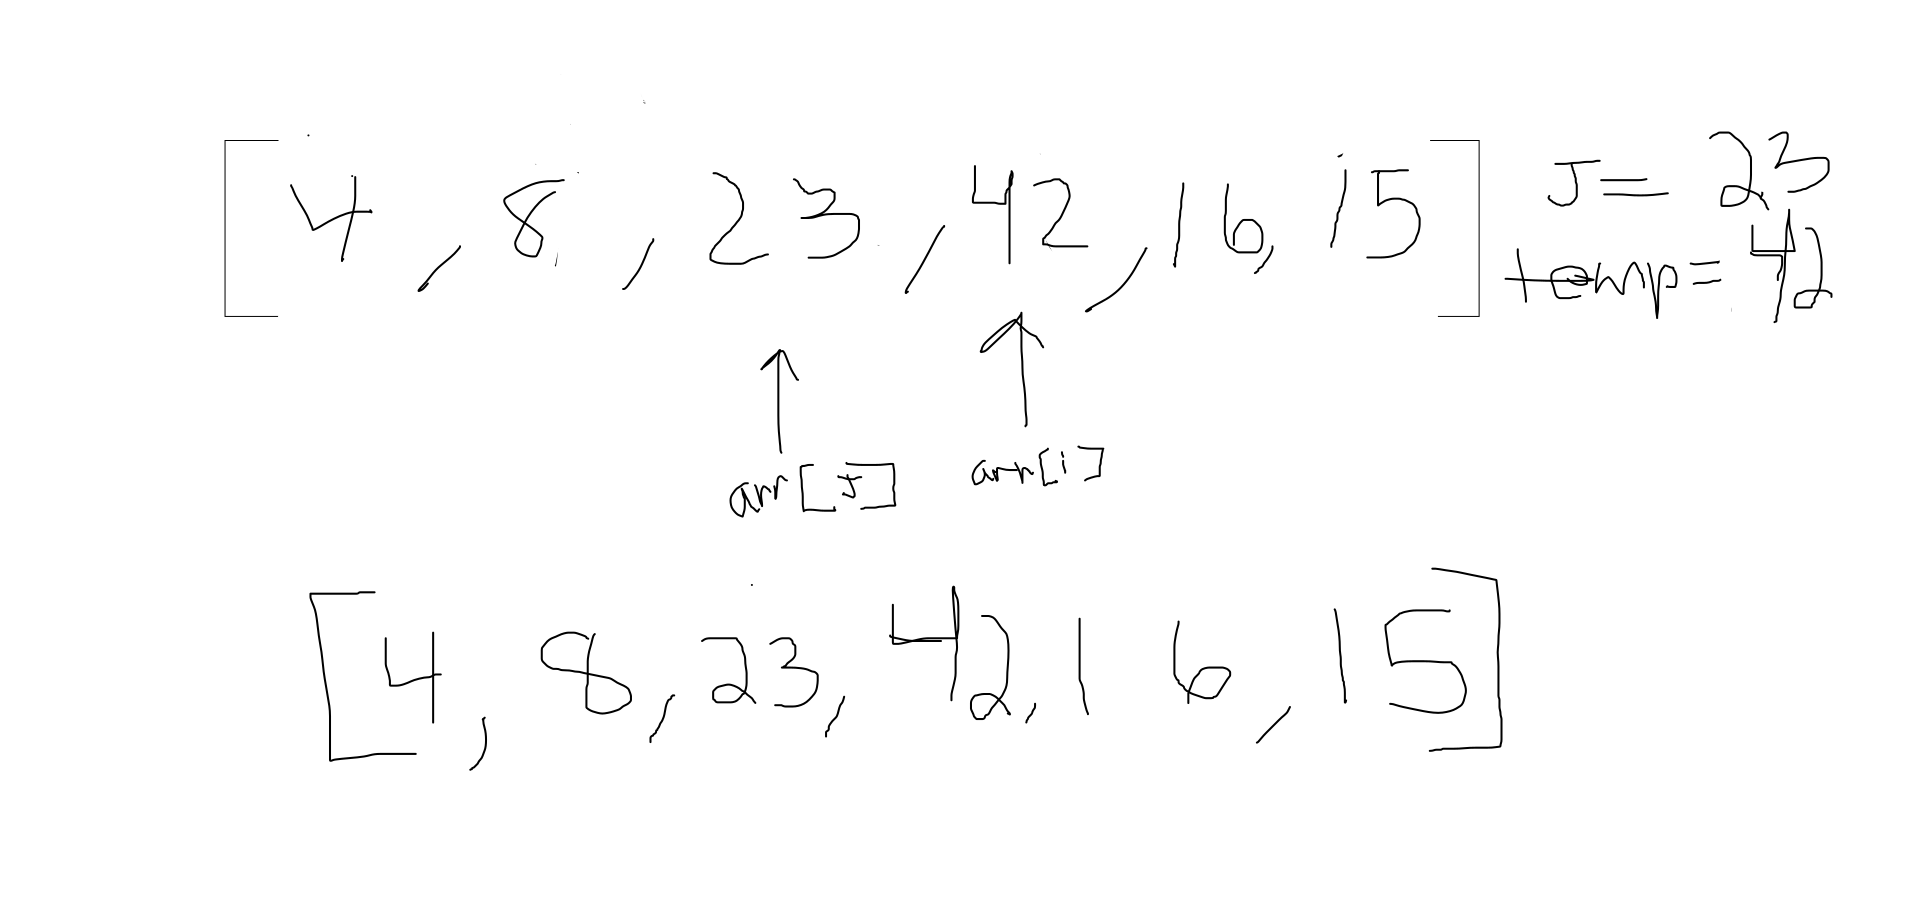 [4, 8, 23, 42, 16, 15] J = 23
temp = 42
arr[J] arr[i]
[4, 8, 23, 42, 16, 15]